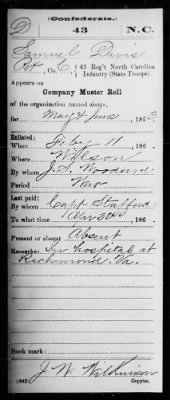 (Confederate.)
D 43 N.C.
Samuel Davis
Pvt, Co. C, 43 Reg't North Carolina
Infantry (State Troops).
Appears on
Company Muster Roll
of the organization named above,
for May & June, 1863.
Enlisted:
When Feby 11, 186 .
Where Wilson
By whom J. S. Woodard
Period War
Last paid:
By whom Capt Stafford
To what time Apr 30, 186 .
Present or absent Absent
Remarks: In hospital at
Richmond Va.
Book mark:
J. W. Wilkinson
(642) Copyist.